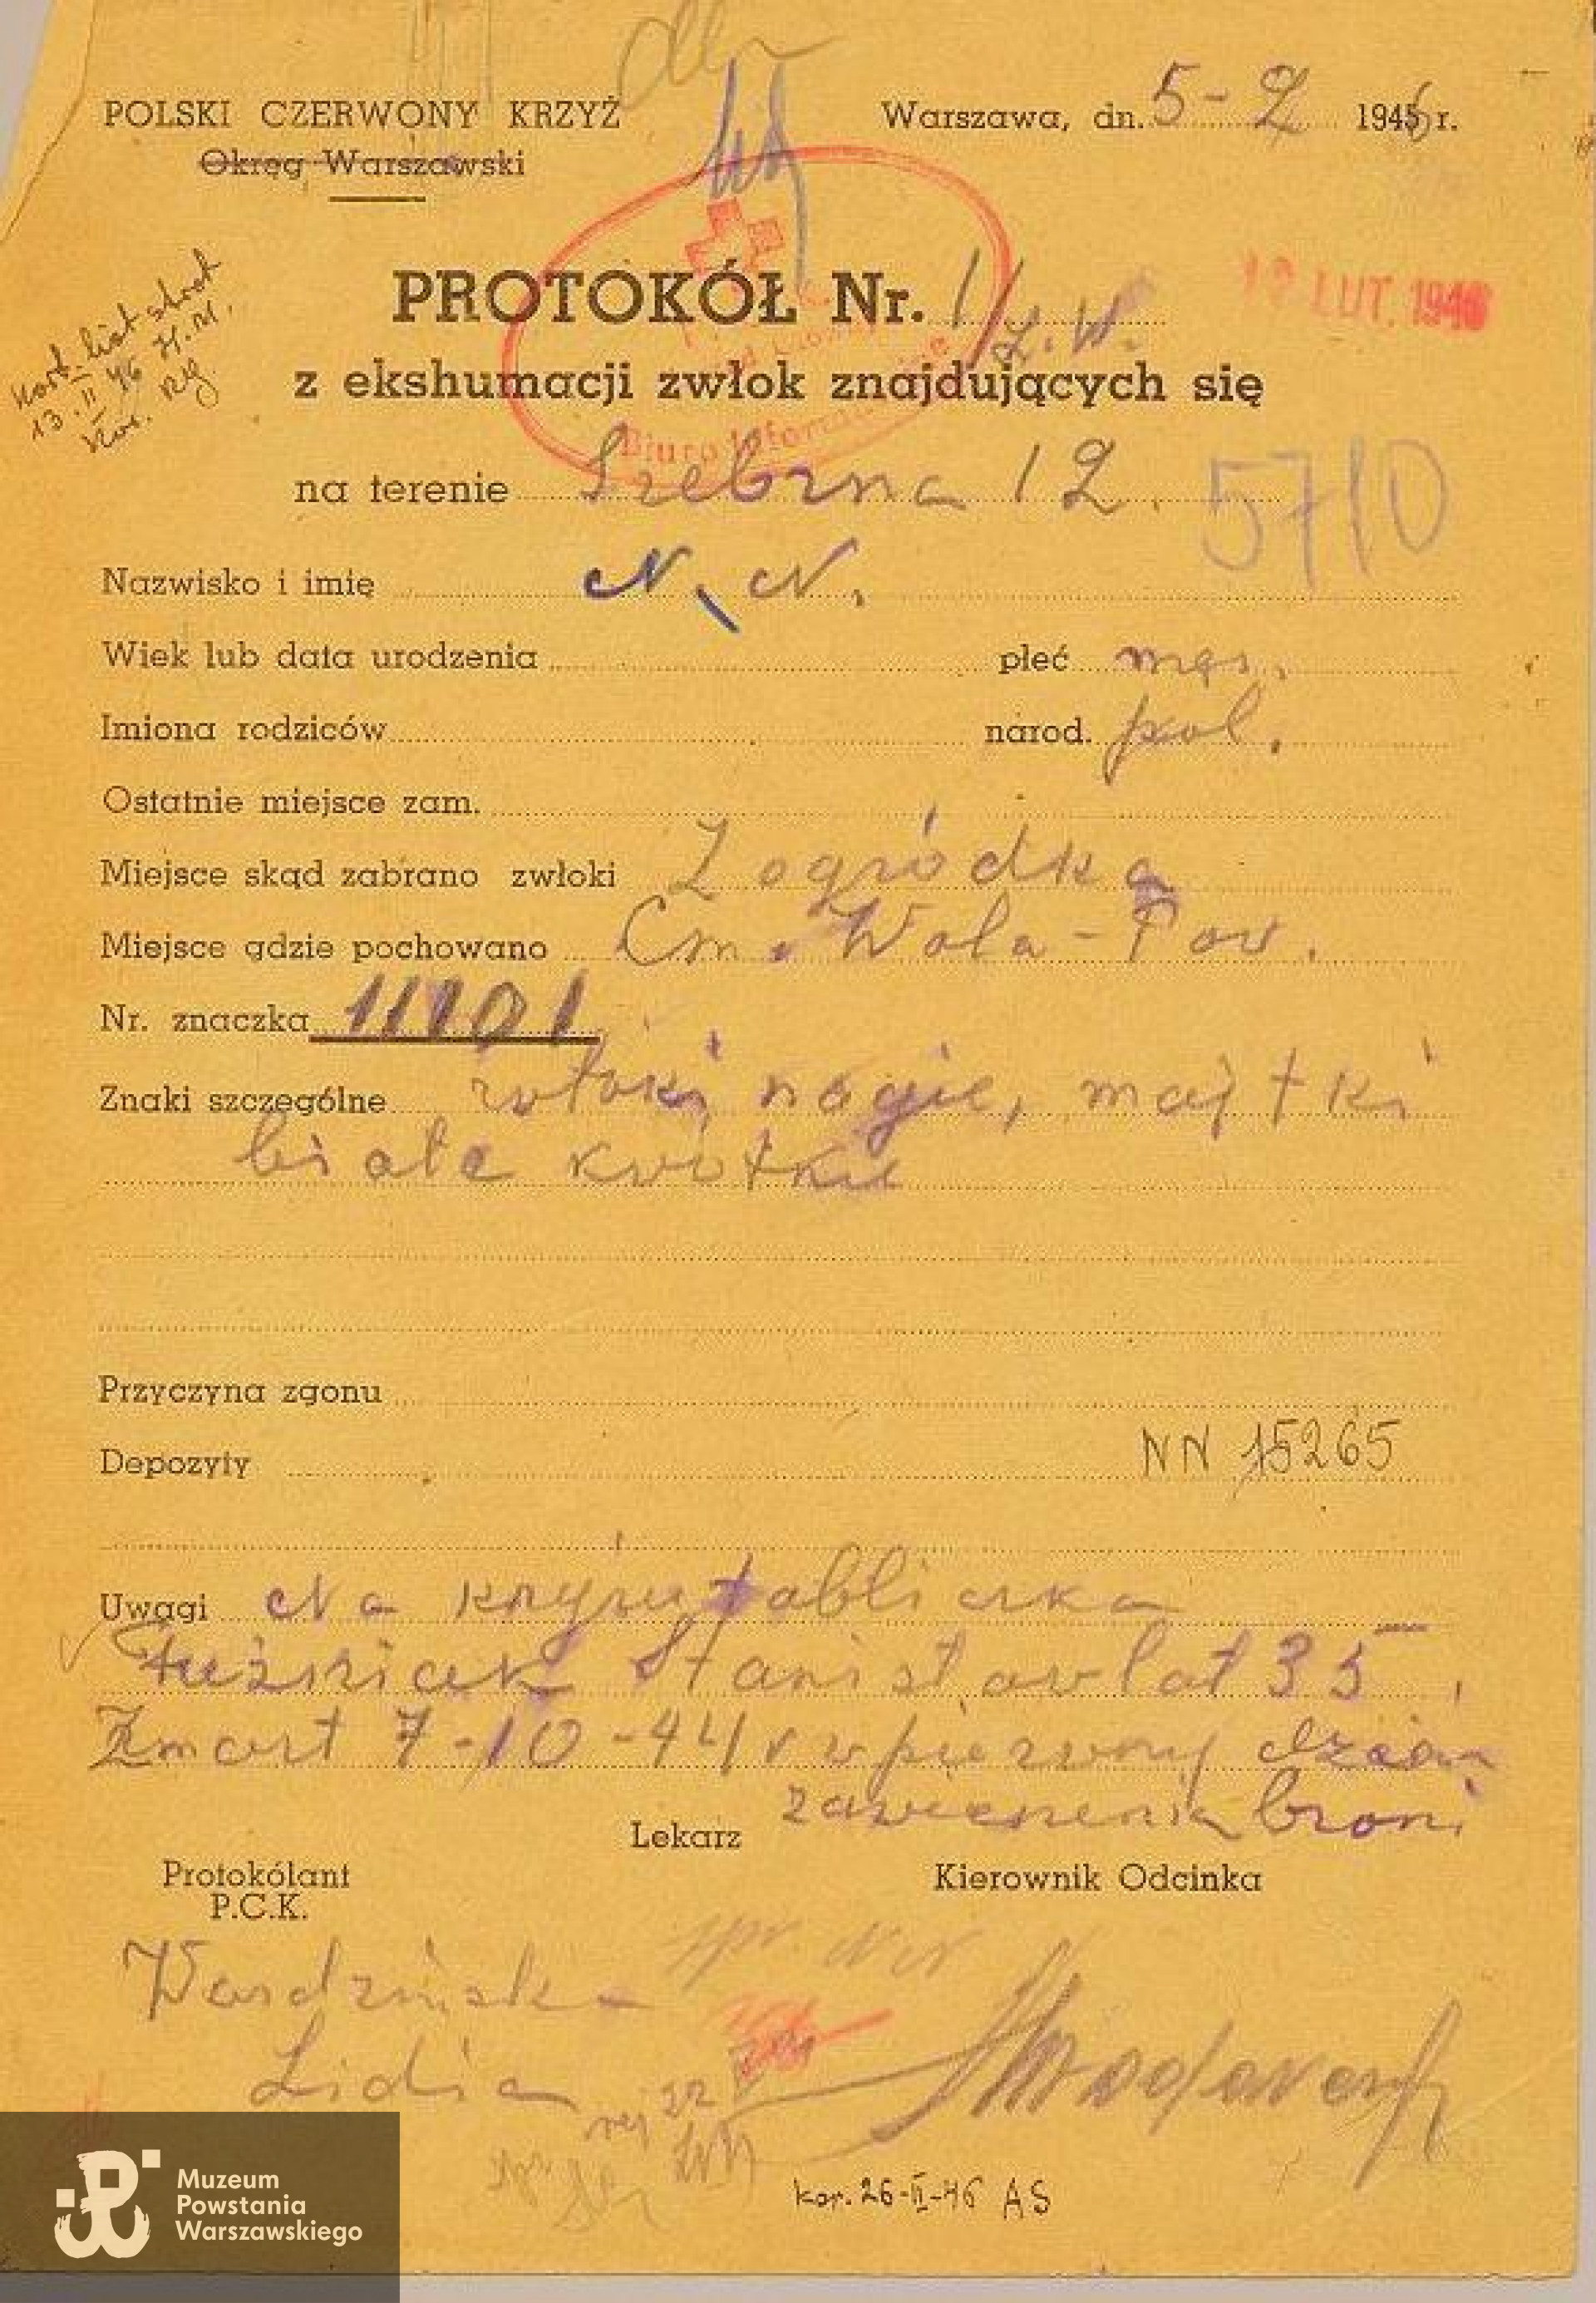 POLSKI CZERWONY KRZYŻ
Okręg Warszawski
Warszawa, dn. 5-2 1946 r.
13.II 46 H.M.
PROTOKÓŁ Nr. 1/Z.W.
12 LUT. 1946
z ekshumacji zwłok znajdujących się
Biuro Informacyjne
na terenie Srebrna 12. 5710
Nazwisko i imię N. N.
Wiek lub data urodzenia płeć męs.
Imiona rodziców narod. pol.
Ostatnie miejsce zam.
Miejsce skąd zabrano zwłoki Z ogródka
Miejsce gdzie pochowano Cm. Wola-Pow.
Nr. znaczka 11101
Znaki szczególne zwłoki nagie, majtki
białe krótkie
Przyczyna zgonu
Depozyty NN 15265
Uwagi Na krzyżu tabliczka
Stanisław lat 35,
Zmarł 7-10-44 r w pierwszy dzień
zawieszenia broni
Lekarz
Protokólant
P.C.K.
Kierownik Odcinka
spr. NN
Wardzińska
Lidia
kor. 26-II-46 AS
Muzeum
Powstania
Warszawskiego